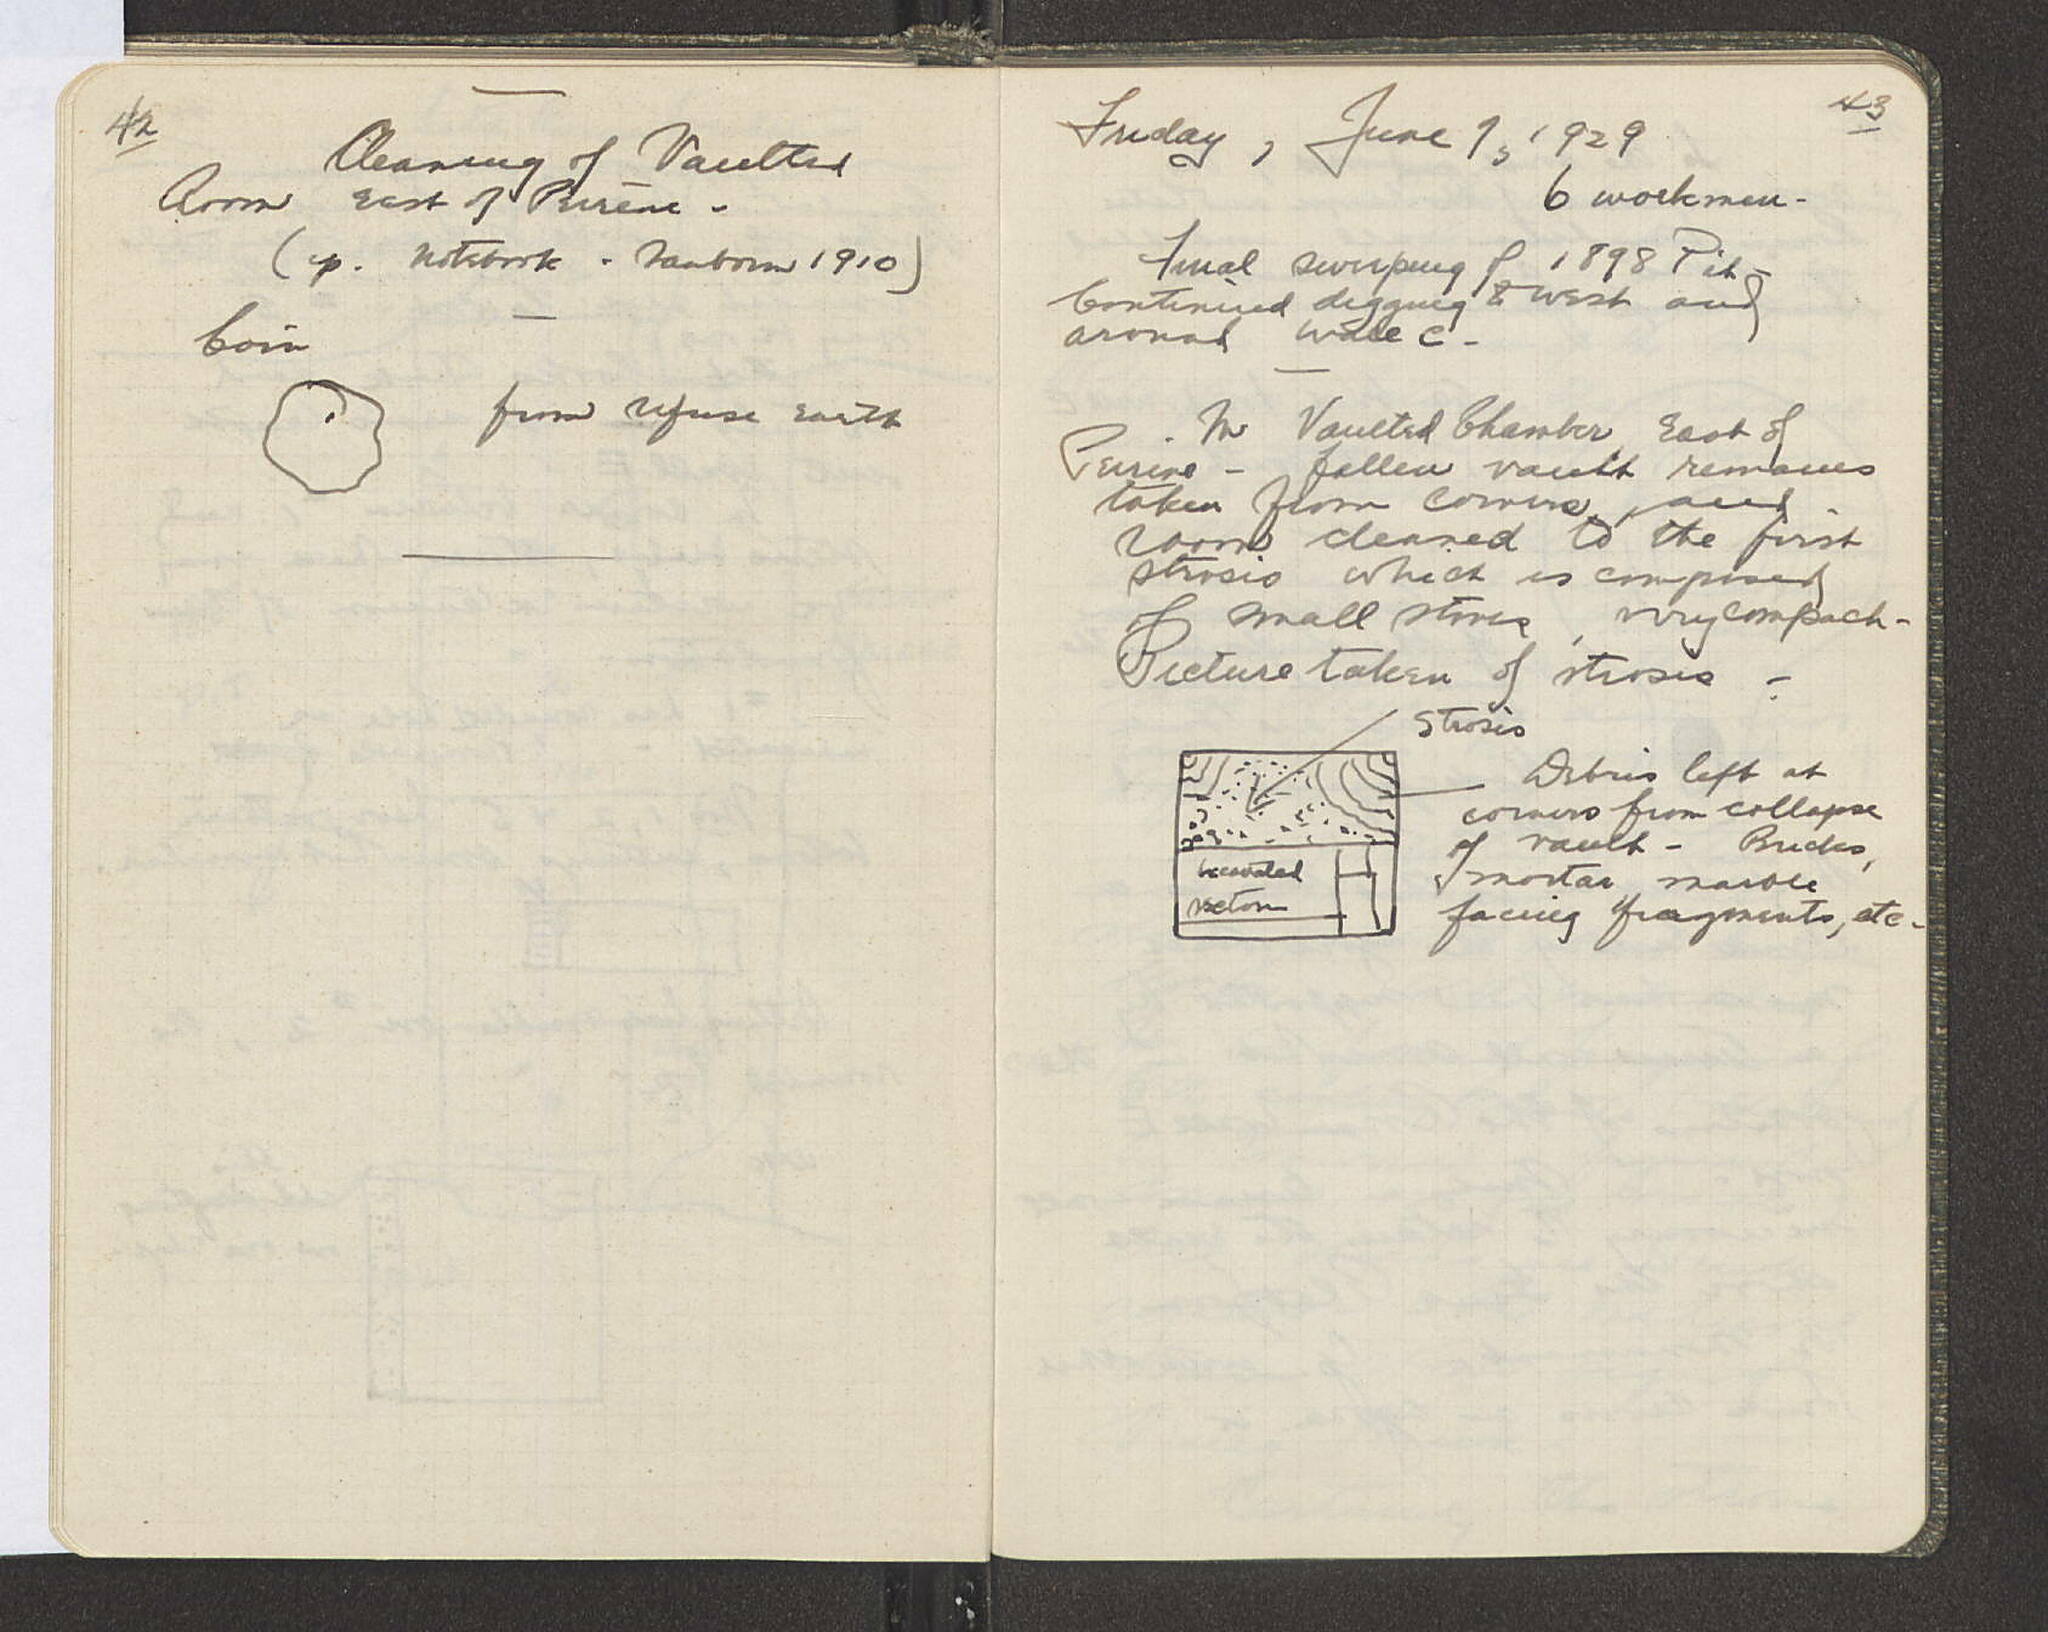 42
Cleaning of Vaulted
Room East of Peirene -
(cp. Notebook - Sanborn 1910)
Coin
from refuse earth
43
Friday, June 7, 1929
6 workmen -
Final sweeping of 1898 Pit -
Continued digging to west and
around wall C -
In Vaulted Chamber East of
Peirene - fallen vault remains
taken from corners, and
room cleaned to the first
strosis which is composed
of small stones, very compact -
Picture taken of strosis -
strosis
Debris left at
corners from collapse
of vault - Bricks,
mortar, marble
facing fragments, etc -
excavated
section